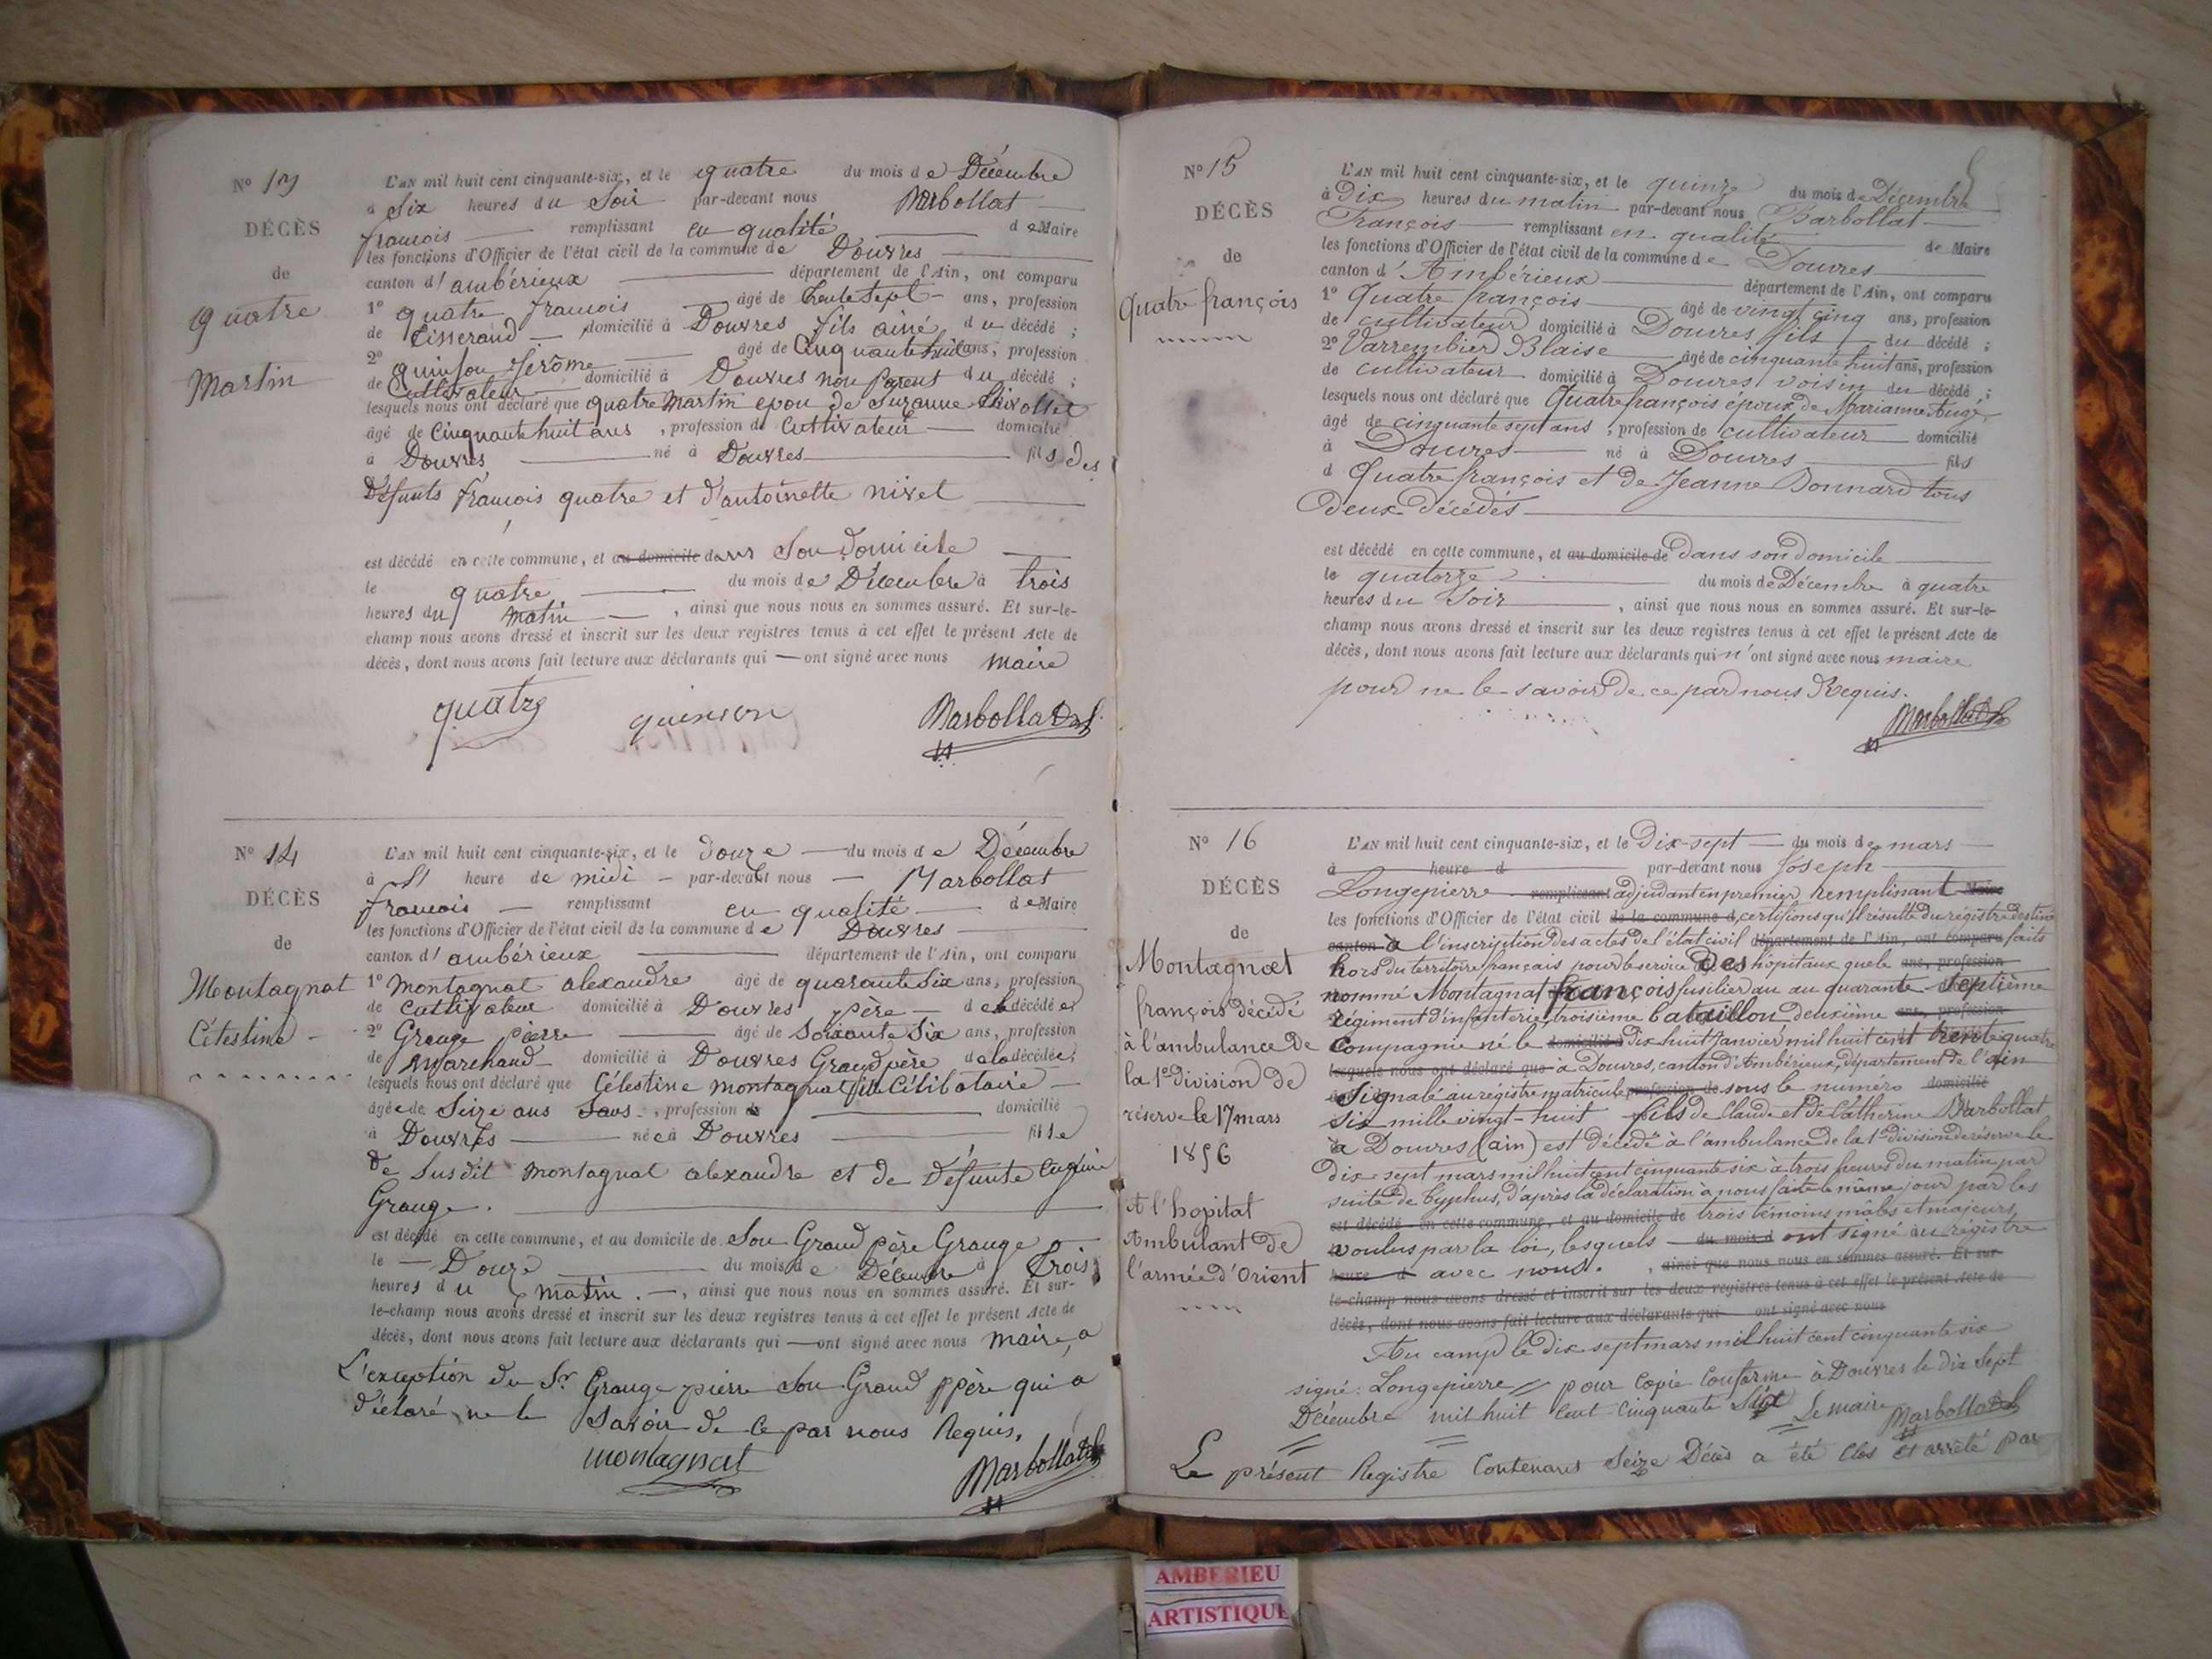 N° 13
DÉCÈS
de
quatre
Martin
L'AN mil huit cent cinquante-six, et le quatre du mois de Décembre
à Six heures du Soir par-devant nous Marbollat
francois remplissant en qualité de Maire
les fonctions d'Officier de l'état civil de la commune de Douvres
canton d'ambérieux département de l'Ain, ont comparu
1° quatre francois âgé de trente sept ans, profession
de Tisserand domicilié à Douvres fils ainé du décédé ;
2° quinson Jérôme âgé de Cinquante huit ans, profession
de Cultivateur domicilié à Douvres non parent du décédé ;
lesquels nous ont déclaré que quatre Martin epou de Suzanne
âgé de Cinquante huit ans, profession de Cultivateur domicilié
à Douvres né à Douvres fils des
Défunts francois quatre et d'antoinette nivet
est décédé en cette commune, et au domicile dans Son Domicile
le quatre du mois de Décembre à trois
heures du matin, ainsi que nous nous en sommes assuré. Et sur-le-
champ nous avons dressé et inscrit sur les deux registres tenus à cet effet le présent Acte de
décès, dont nous avons fait lecture aux déclarants qui — ont signé avec nous maire
quatre quinson Marbollat
N° 14
DÉCÈS
de
Montagnat
Célestine
L'AN mil huit cent cinquante-six, et le Douze du mois de Décembre
à heure de midi par-devant nous Marbollat
francois remplissant en qualité de Maire
les fonctions d'Officier de l'état civil de la commune de Douvres
canton d'ambérieux département de l'Ain, ont comparu
1° Montagnat alexandre âgé de quarante Six ans, profession
de Cultivateur domicilié à Douvres père de la décédée
2° Grange pierre âgé de Soixante Six ans, profession
de Marchand domicilié à Douvres Grand père de la décédée ;
lesquels nous ont déclaré que Célestine Montagnat fille Célibataire
âgée de Seize ans Sans, profession de domicilié
à Douvres née à Douvres fille
de Susdit Montagnat alexandre et de Défunte
Grange.
est décédé en cette commune, et au domicile de Son Grand père Grange
le Douze du mois de Décembre à Trois
heures du matin, ainsi que nous nous en sommes assuré. Et sur-
le-champ nous avons dressé et inscrit sur les deux registres tenus à cet effet le présent Acte de
décès, dont nous avons fait lecture aux déclarants qui — ont signé avec nous maire, a
L'exception du Sr Grange pierre Son Grand père qui a
déclaré ne le Savoir de ce par nous Requis.
montagnat Marbollat
N° 15
DÉCÈS
de
Quatre françois
L'AN mil huit cent cinquante-six, et le quinze du mois de Décembre
à Dix heures du matin par-devant nous Marbollat
François remplissant en qualité de Maire
les fonctions d'Officier de l'état civil de la commune de Douvres
canton d'Ambérieux département de l'Ain, ont comparu
1° Quatre françois âgé de vingt cinq ans, profession
de cultivateur domicilié à Douvres fils du décédé ;
2° Varrembier Blaise âgé de cinquante huit ans, profession
de cultivateur domicilié à Douvres voisin du décédé ;
lesquels nous ont déclaré que Quatre françois époux de Marianne Augé
âgé de cinquante sept ans, profession de cultivateur domicilié
à Douvres né à Douvres fils
d Quatre françois et de Jeanne Bonnard tous
Deux décédés
est décédé en cette commune, et au domicile de Dans son Domicile
le quatorze du mois de Décembre à quatre
heures du Soir, ainsi que nous nous en sommes assuré. Et sur-le-
champ nous avons dressé et inscrit sur les deux registres tenus à cet effet le présent Acte de
décès, dont nous avons fait lecture aux déclarants qui n'ont signé avec nous maire
pour ne le savoir de ce par nous Requis.
Marbollat
N° 16
DÉCÈS
de
Montagnat
françois décédé
à l'ambulance de
la 1e division de
réserve le 17 mars
1856
A l'hopital
Ambulant de
l'armée d'Orient
L'AN mil huit cent cinquante-six, et le Dix-sept du mois de mars
à heure d par-devant nous Joseph
Longepierre remplissant adjudant en premier remplissant Maire
les fonctions d'Officier de l'état civil de la commune d, certifions qu'il résulte du régistre destiné
canton à l'inscription des actes de l'état civil département de l'Ain, ont comparu faits
hors du territoire français pour le service Des hôpitaux que le ans, profession
nommé Montagnat françois fusilier au au quarante-septième
régiment d'infanterie, troisième bataillon deuxième ans, profession
Compagnie né le domicilié à Dix huit Janvier mil huit cent trente quatre
lesquels nous ont déclaré que à Douvres, canton d'Ambérieux, département de l'ain
Signalé au régistre matricule profession de sous le numéro domicilié
six mille vingt-huit fils de Claude et de Catherine Marbollat
à Douvres (ain) est décédé à l'ambulance de la 1e division de réserve le
dix-sept mars mil huit cent cinquante six à trois heures du matin par
suite de typhus, d'après la déclaration à nous faite le même jour par les
est décédé en cette commune, et au domicile de trois témoins mâles et majeurs
voulus par la loi, lesquels du mois d ont signé au régistre
heure d avec nous. , ainsi que nous nous en sommes assuré. Et sur-
le-champ nous avons dressé et inscrit sur les deux registres tenus à cet effet le présent Acte de
décès, dont nous avons fait lecture aux déclarants qui ont signé avec nous
Au camp le dix sept mars mil huit cent cinquante six
signé : Longepierre // pour Copie Conforme à Douvres le dix Sept
Décembre mil huit Cent Cinquante Six Le maire Marbollat
Le présent Registre Contenant Seize Décès a été Clos et arrêté par
AMBERIEU
ARTISTIQUE